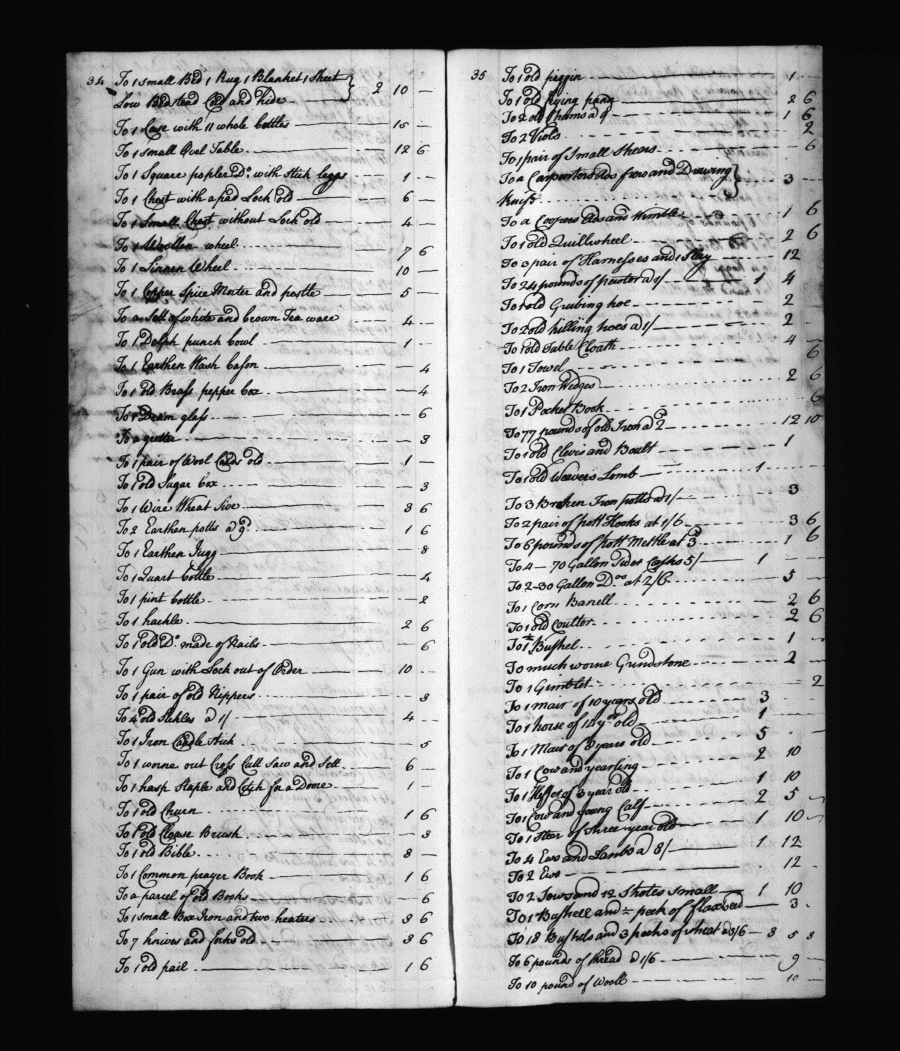 34
To 1 small Bed 1 Rug 1 Blanket 1 sheet
Low Bedstead Cord and hide 2 10 —
To 1 Case with 11 whole bottles 15 —
To 1 small Oval Table 12 6
To 1 Square popler Do. with Stick leggs 1 —
To 1 Chest with a pad Lock old 6 —
To 1 Small Chest without Lock old 4 —
To 1 Woollen wheel 7 6
To 1 Linnen Wheel 10 —
To 1 Copper Spice Morter and pestle 5 —
To a Sett of white and brown Tea ware 4 —
To 1 Delph punch bowl 1 —
To 1 Earthen Wash bason 4
To 1 old Brass pepper box 4
To 1 Dram glass 6
To a 3
To 1 pair of Wool Cards old 1 —
To 1 old Sugar box 3
To 1 Wire Wheat Sive 3 6
To 2 Earthen potts a 9d 1 6
To 1 Earthen Jugg 8
To 1 Quart bottle 4
To 1 pint bottle 2
To 1 hackle 2 6
To 1 old Do. made of Nails 6
To 1 Gun with Lock out of Order 10 —
To 1 pair of old Nippers 3
To 4 old Sickles a 1/ 4 —
To 1 Iron Candle Stick 5
To 1 worne out Cross Cutt Saw and Sett 6 —
To 1 hasp Staple and for a Doore 1 —
To 1 old Churn 1 6
To 1 old Cloase Brush 3
To 1 old Bible 3 —
To 1 Common prayer Book 1 6
To a parcel of old Books 6
To 1 small Box Iron and two heaters 3 6
To 7 knives and forks old 3 6
To 1 old pail 1 6
35
To 1 old piggin 1 —
To 1 old frying pann 2 6
To 2 old a 9 1 6
To 2 Viols 2
To 1 pair of Small Shears 6
To a Carpenters Adds frow and Drawing
knife 3 —
To a Coopers Adds and Wimble 1 6
To 1 old Quillwheel 2 6
To 3 pair of Harnesses and 1 Slay 12
To 24 pounds of pewter a 1/ 1 4
To 1 old Grubing hoe 2
To 2 old hilling hoes a 1/ 2
To 1 old Table Cloath 4
To 1 Towel 6
To 2 Iron Wedges 2 6
To 1 Pocket Book 6
To 77 pounds of old Iron a 2d 12 10
To 1 old Clevis and Boult 1
To 1 old Weavers Lomb 1
To 3 Broken Iron potts a 1/ 3
To 2 pair of pott Hooks at 1/6 3 6
To 6 pounds of pott Mettle at 3d 1 6
To 4 — 70 Gallon Sider Casks 5/ 1 —
To 2 - 30 Gallon Dos. at 2/6 5
To 1 Corn Barrell 2 6
To 1 old Coulter 2 6
To 1/2 Bushel 1 —
To much worne Grindstone 2
To 1 Gimblet 2
To 1 mair of 10 years old 3
To 1 horse of old 1
To 1 Mair of 3 years old 5
To 1 Cow and yearling 2 10
To 1 Heffer of 3 year old 1 10
To 1 Cow and young Calf 2 5
To 1 Steer of three year old 1 10
To 4 Ews and Lambs a 8/ 1 12
To 2 Ews 12
To 2 Sows and 12 Shotes Small 1 10
To 1 Bushell and 1/2 peck of flaxseed 3
To 18 Bushels and 3 pecks of wheat a 3/6 3 5 8
To 6 pounds of thread a 1/6 9 —
To 10 pound of Wooll 10 —